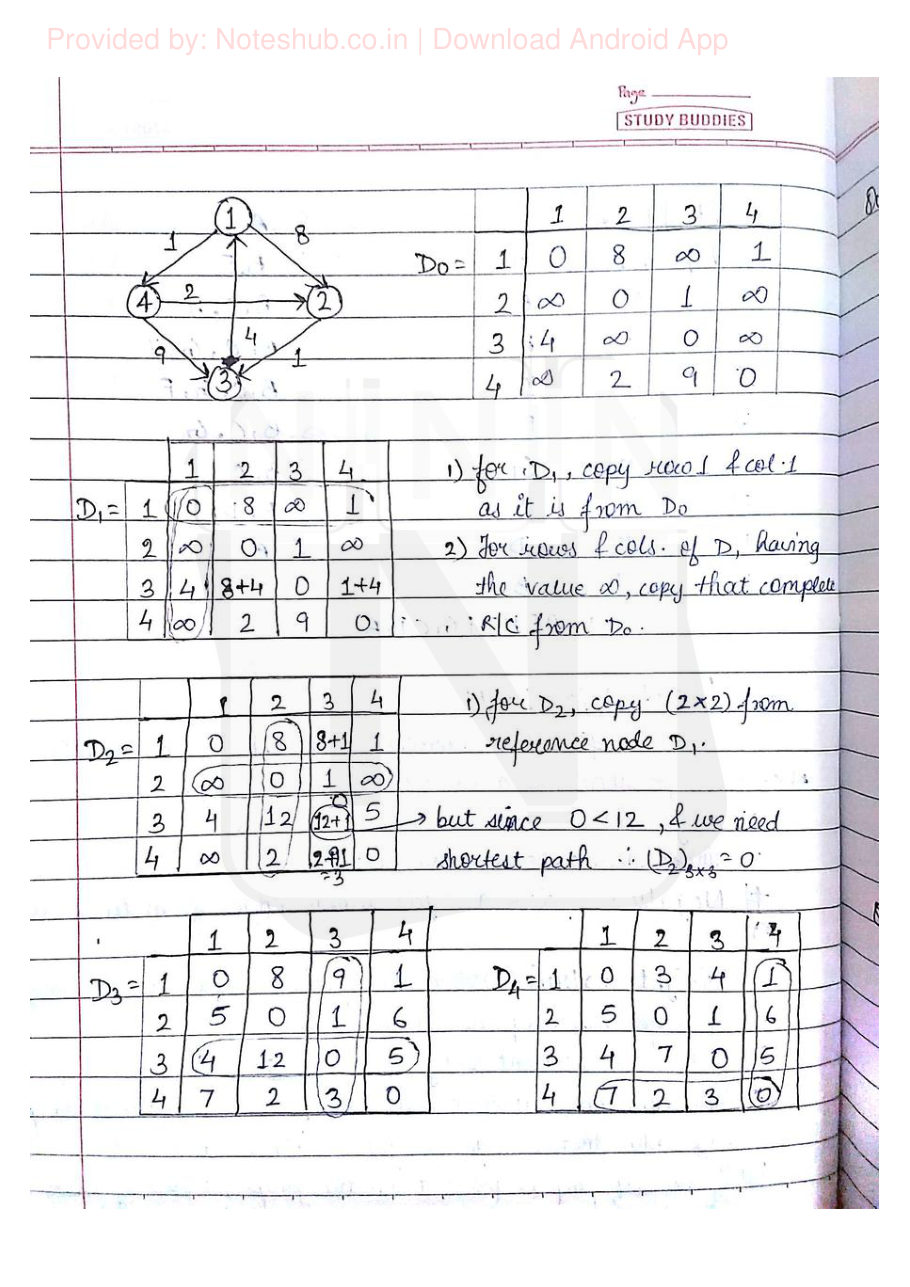 Provided by: Noteshub.co.in | Download Android App
Page
STUDY BUDDIES
1
1 8
4 2 2
4
9 1
3
1 2 3 4
D0 = 1 0 8 ∞ 1
2 ∞ 0 1 ∞
3 4 ∞ 0 ∞
4 ∞ 2 9 0
1 2 3 4
D1 = 1 0 8 ∞ 1
2 ∞ 0 1 ∞
3 4 8+4 0 1+4
4 ∞ 2 9 0
1) for D1, copy row 1 & col. 1
as it is from D0
2) For rows & cols. of D, having
the value ∞, copy that complete
R/C from D0.
1 2 3 4
D2 = 1 0 8 8+1 1
2 ∞ 0 1 ∞
0
3 4 12 12+1 5
4 ∞ 2 2+1 0
=3
1) for D2, copy (2×2) from
reference node D1.
→ but since 0 < 12, & we need
shortest path ∴ (D2)3×3 = 0
1 2 3 4
D3 = 1 0 8 9 1
2 5 0 1 6
3 4 12 0 5
4 7 2 3 0
1 2 3 4
D4 = 1 0 3 4 1
2 5 0 1 6
3 4 7 0 5
4 7 2 3 0